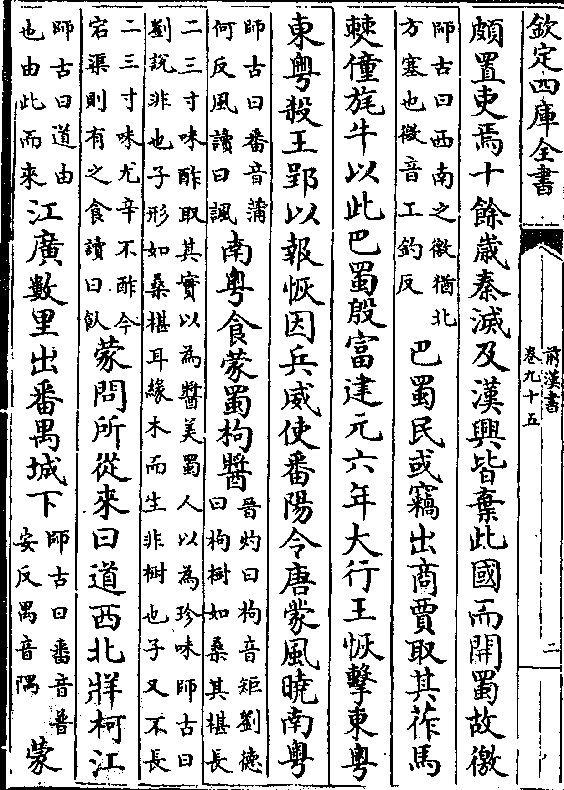 欽定四庫全書
前漢書
卷九十五
二
頗置吏焉十餘歲秦滅及漢興皆棄此國而開蜀故徼
師古曰西南之徼猶北
方塞也徼音工釣反
巴蜀民或竊出商賈取其莋馬
僰僮旄牛以此巴蜀殷富建元六年大行王恢擊東粤
東粤殺王郢以報恢因兵威使番陽令唐蒙風曉南粤
師古曰番音蒲
何反風讀曰諷
南粤食蒙蜀枸醬
晉灼曰枸音矩劉德
曰枸樹如桑其椹長
二三寸味酢取其實以為醬美蜀人以為珍味師古曰
劉說非也子形如桑椹耳緣木而生非樹也子又不長
二三寸味尤辛不酢今
宕渠則有之食讀曰飤
蒙問所從來曰道西北牂柯江
師古曰道由
也由此而來
江廣數里出番禺城下
師古曰番音普
安反禺音隅
蒙